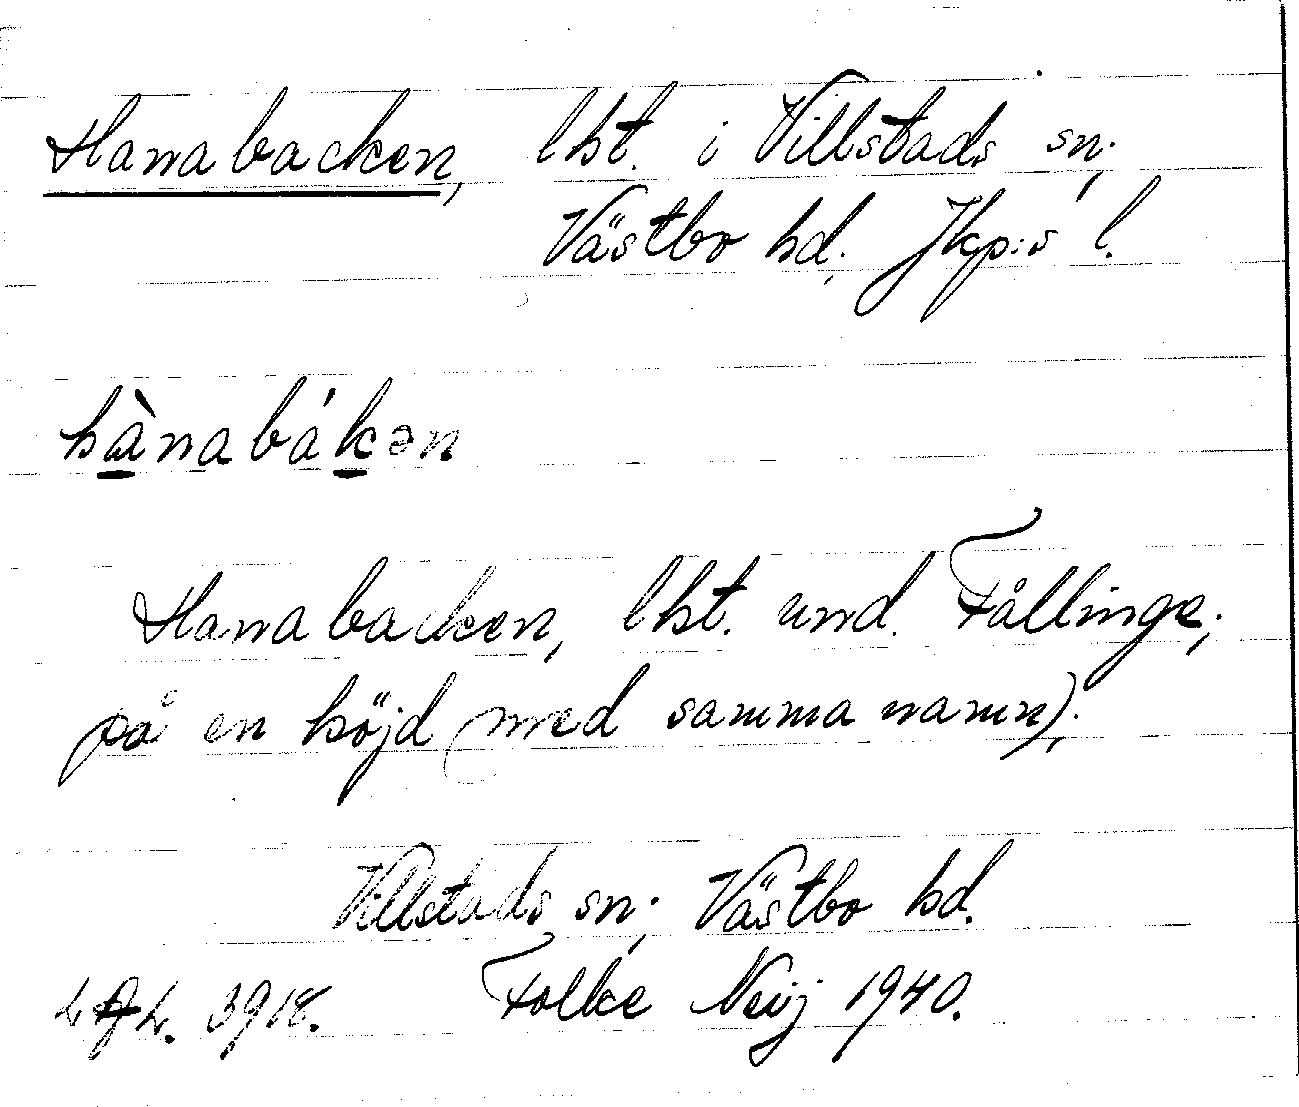 Hanabacken, lht. i Villstads sn;
Västbo hd. Jkp:s l.
hànabákən
Hanabacken, lht. und. Fållinge;
på en höjd (med samma namn);
Villstads sn; Västbo hd.
LAL. 3918. Folke Neij 1940.